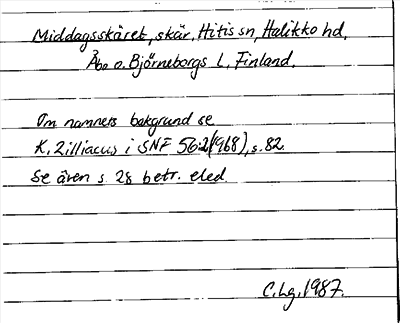 Middagsskäret, skär, Hitis sn, Halikko hd,
Åbo o. Björneborgs l., Finland.
Om namnets bakgrund se
K. Zilliacus i SNF 56:2(1968), s. 82.
Se även s. 28 betr. eled.
C. Lg. 1987.